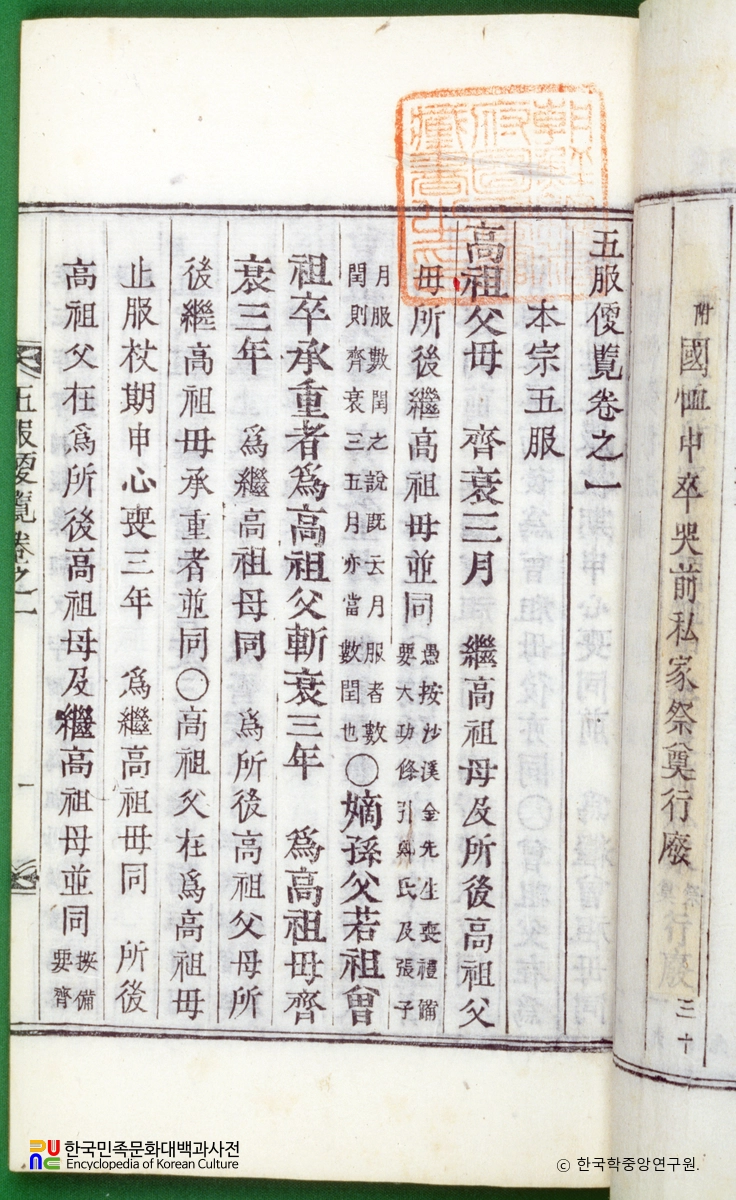 附 國恤中卒哭前私家祭奠行廢 三十
朝鮮總督
府圖書館
藏書之印
五服便覽卷之一
本宗五服
高祖父母 齊衰三月 繼高祖母及所後高祖父
母所後繼高祖母並同 愚按沙溪金先生喪禮備
要大功條引鄭氏及張子
月服數閏之說旣云月服者數
閏則齊衰三五月亦當數閏也
○嫡孫父若祖曾
祖卒承重者爲高祖父斬衰三年 爲高祖母齊
衰三年 爲繼高祖母同 爲所後高祖父母所
後繼高祖母承重者並同○高祖父在爲高祖母
止服杖期申心喪三年 爲繼高祖母同 所後
高祖父在爲所後高祖母及繼高祖母並同 按備
要齊
五服便覽卷之一 一
한국민족문화대백과사전
Encyclopedia of Korean Culture
© 한국학중앙연구원.